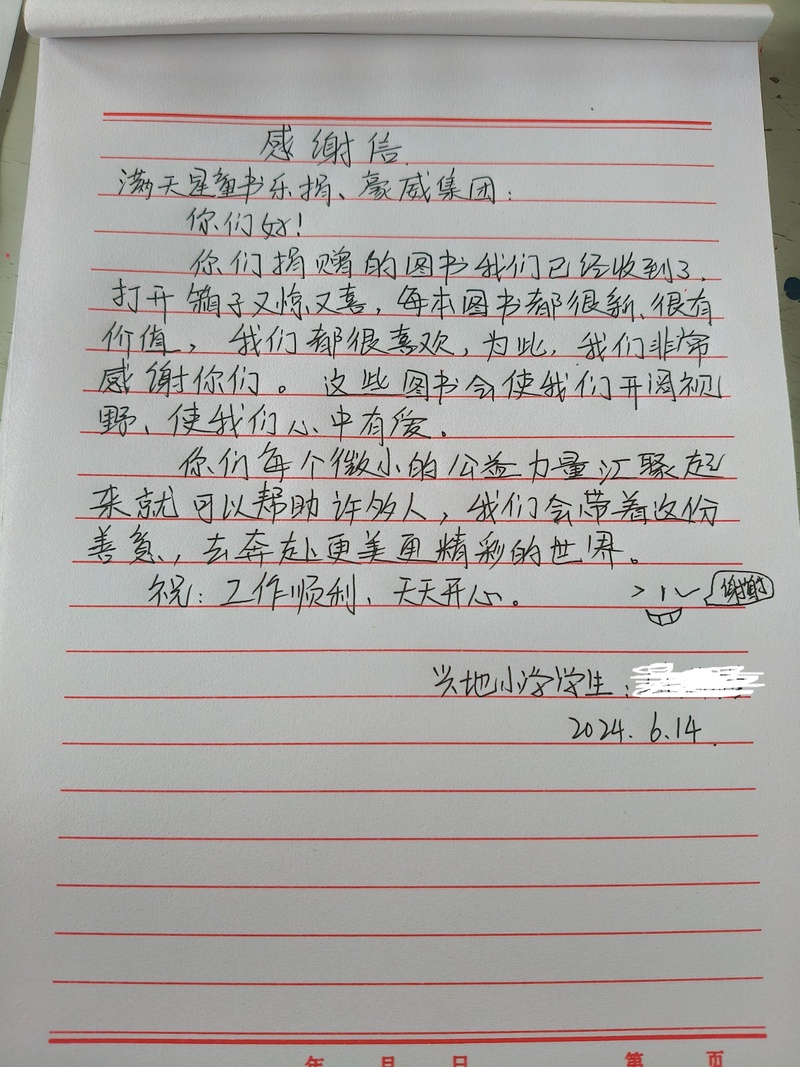 感谢信.
满天星童书乐捐、豪威集团：
你们好！
你们捐赠的图书我们已经收到了.
打开箱子又惊又喜，每本图书都很新、很有
价值，我们都很喜欢，为此，我们非常
感谢你们。这些图书会使我们开阔视
野、使我们心中有爱。
你们每个微小的公益力量汇聚起
来就可以帮助许多人，我们会带着这份
善意，去奔赴更美更精彩的世界。
祝：工作顺利、天天开心。
谢谢
兴地小学学生：
2024.6.14.
年 月 日 第 页